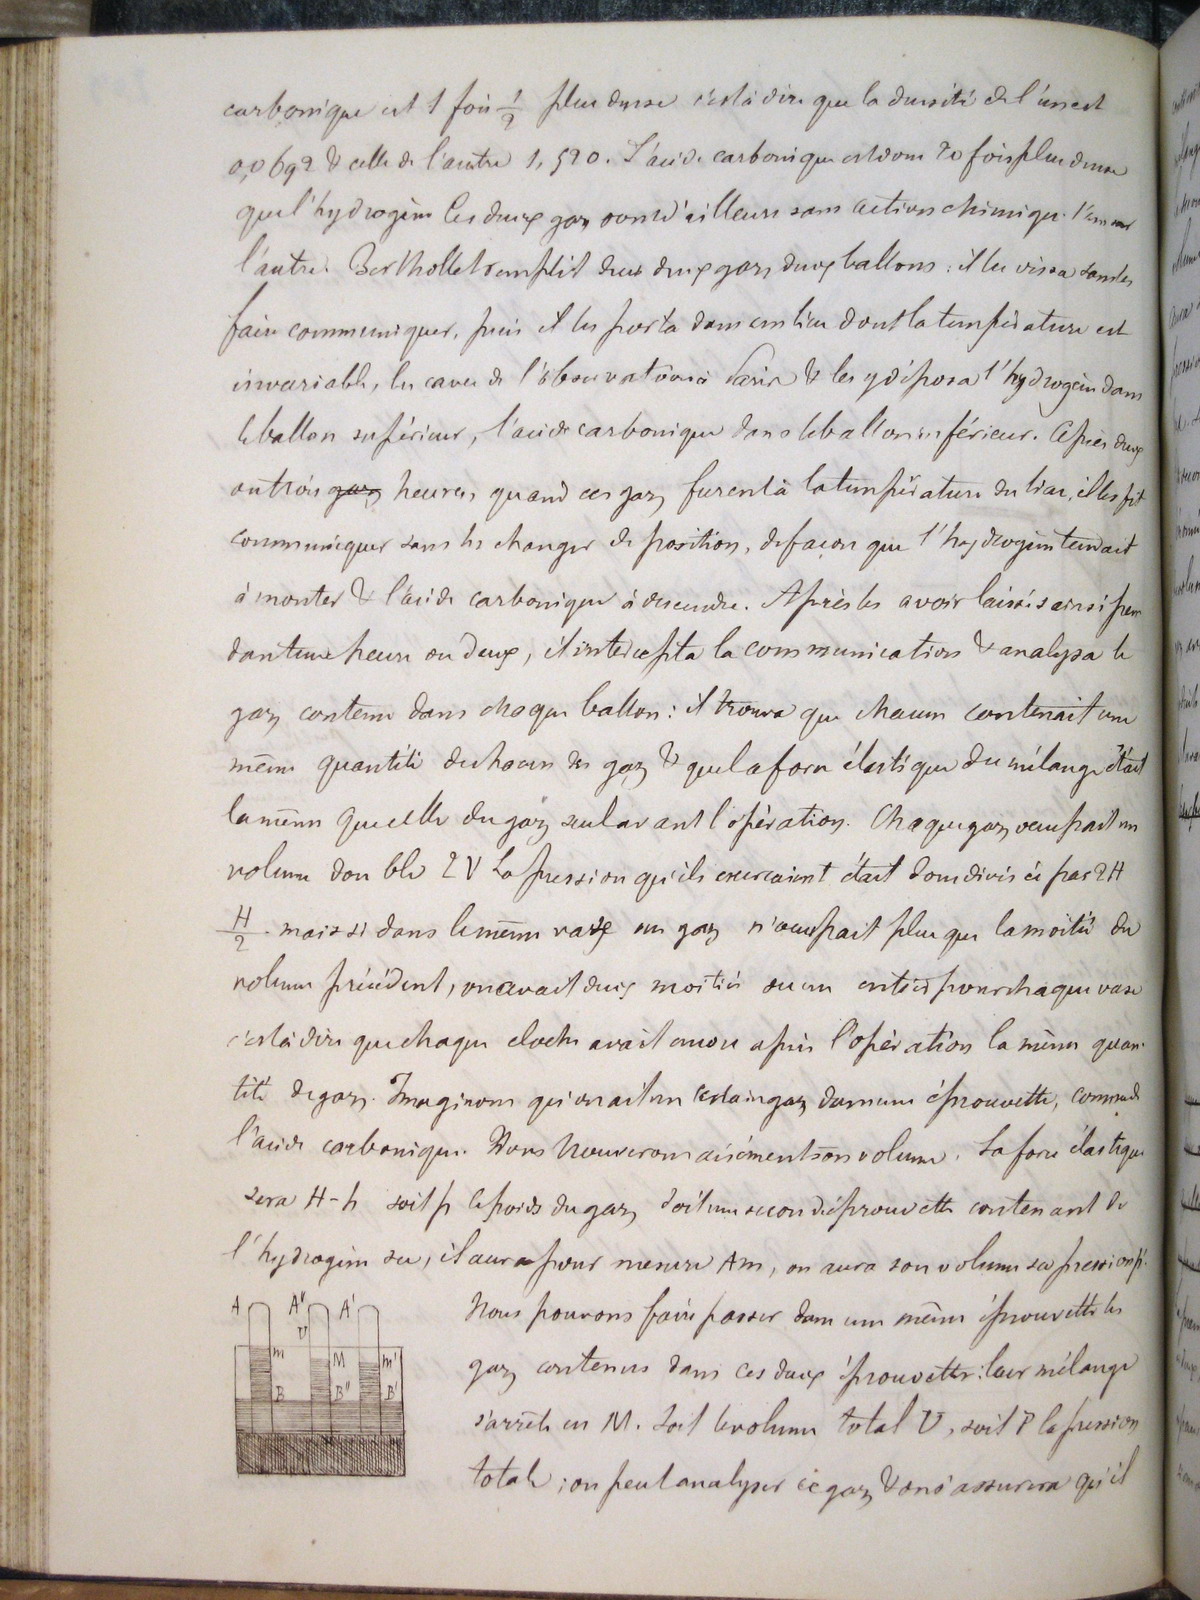 carbonique est 1 fois 1/2 plus dense c'est à dire que la densité de l'un est
0,0692 & celle de l'autre 1,520. L'acide carbonique est donc 20 fois plus dense
que l'hydrogène Ces deux gaz sont d'ailleurs sans action chimique l'un sur
l'autre. Berthollet remplit des deux gaz deux ballons : il les vissa sans les
faire communiquer, puis il les porta dans un lieu dont la température est
invariable, les caves de l'observatoire à Paris & les y déposa l'hydrogène dans
le ballon supérieur, l'acide carbonique dans le ballon inférieur. Après deux
ou trois gaz heures, quand ces gaz furent à la température du lieu, il les fit
communiquer sans les changer de position, de façon que l'hydrogène tendait
à monter & l'acide carbonique à descendre. Après les avoir laissés ainsi pen
dant une heure ou deux, il intercepta la communication & analysa le
gaz contenu dans chaque ballon : il trouva que chacun contenait une
même quantité de chacun des gaz & que la force élastique du mélange était
la même que celle du gaz seul avant l'opération. Chaque gaz occupait un
volume double 2V La pression qu'ils exerçaient était donc divisée par 2 H
H/2 . mais si dans le même vase un gaz n'occupait plus que la moitié du
volume précédent, on avait deux moitiés ou un entier pour chaque vase
c'est à dire que chaque cloche avait encore après l'opération la même quan-
tité de gaz. Imaginons qu'on ait un certain gaz dans une éprouvette, comme de
l'acide carbonique. Nous trouverons aisément son volume. La force élastique
sera H-h soit p le poids du gaz soit une seconde éprouvette contenant de
l'hydrogène sec, il aura pour mesure Am, on aura son volume sa pression p'.
Nous pouvons faire passer dans une même éprouvette les
gaz contenus dans ces deux éprouvettes : leur mélange
s'arrête en M. Soit le volume total V, soit P la pression
totale ; on peut analyser ce gaz & on s'assurera qu'il
A A" A'
V
m M m'
B B" B'